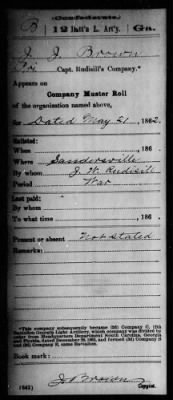 (Confederate.)
B 12 Batt'n L. Art'y. Ga.
J. J. Brown
Pri, Capt. Rudisill's Company.*
Appears on
Company Muster Roll
of the organization named above,
for Dated May 21, 1862.
Enlisted:
When , 186 .
Where Sandersville
By whom J. W. Rudisill
Period War
Last paid:
By whom
To what time , 186 .
Present or absent Not stated
Remarks:
*This company subsequently became (2d) Company C, 12th
Battalion Georgia Light Artillery,
Book mark:
(642) J. Brown
Copyist.